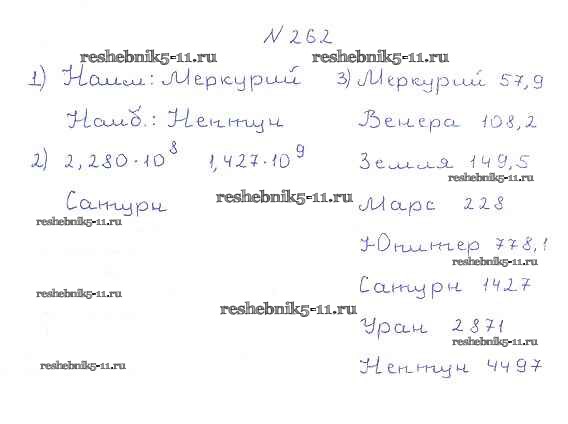 N 262
reshebnik5-11.ru reshebnik5-11.ru
1) Наим: Меркурий
Наиб.: Нептун
2) 2,280·10^8 1,427·10^9
Сатурн
reshebnik5-11.ru
reshebnik5-11.ru
reshebnik5-11.ru
reshebnik5-11.ru
3) Меркурий 57,9
Венера 108,2
Земля 149,5
reshebnik5-11.ru
Марс 228
Юпитер 778,1
reshebnik5-11.ru
Сатурн 1427
reshebnik5-11.ru
Уран 2871
reshebnik5-11.ru
Нептун 4497